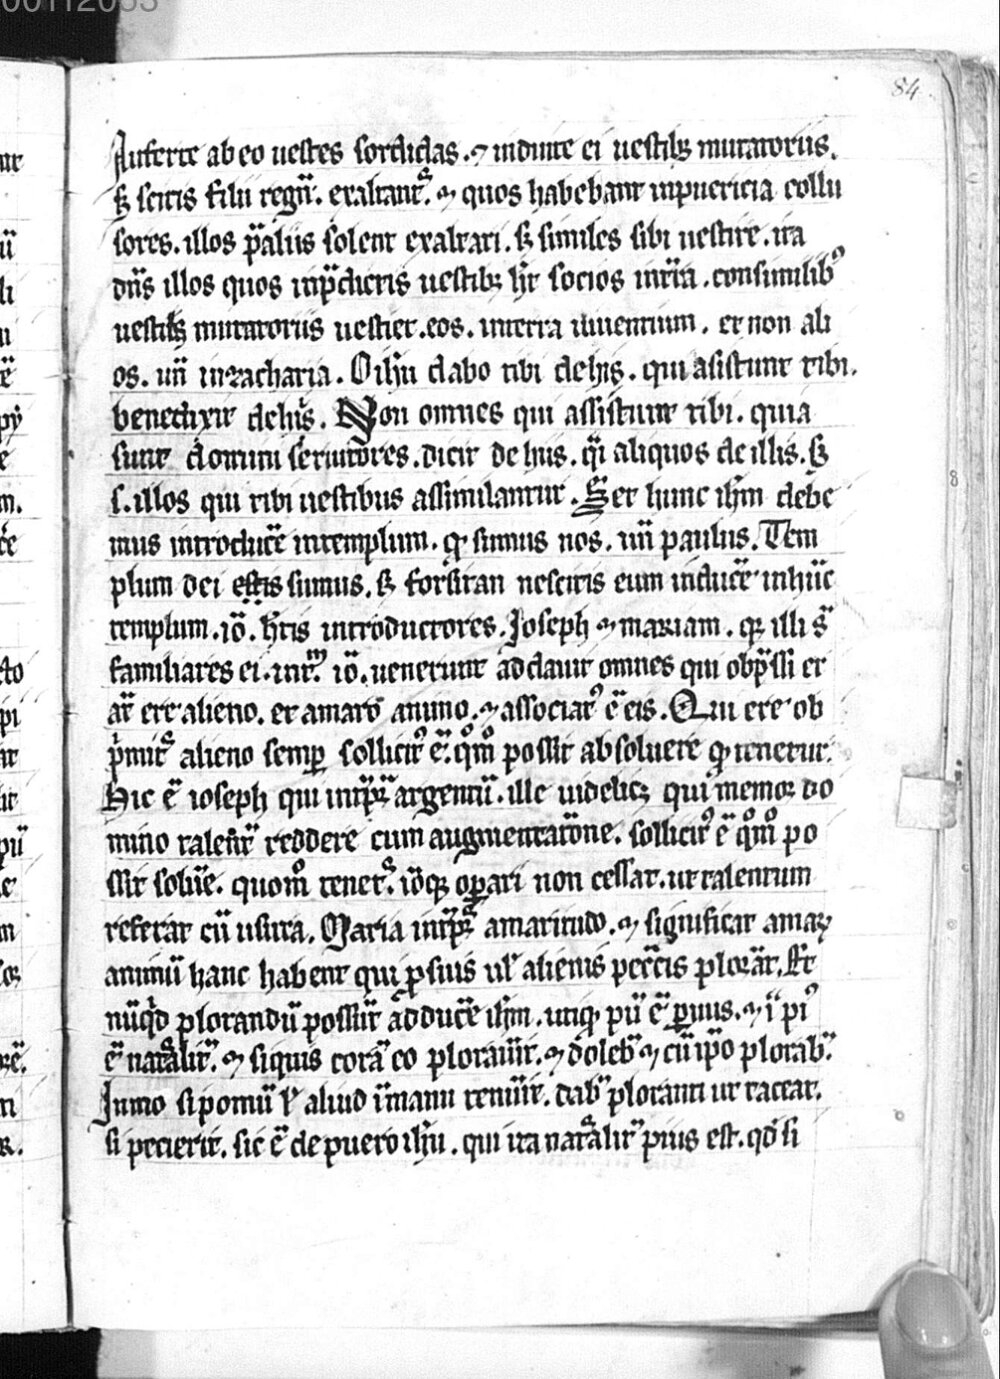 00112055
84
Auferte ab eo uestes sordidas. ⁊ induite ei uestibꝫ mutatoriis.
sꝫ scitis filii regū. exaltant᷑. ⁊ quos habebant in puericia collu
sores. illos p̄ aliis solent exaltari. sꝫ similes sibi uestire. ita
dn̄s illos quos in p̄dictis uestibꝫ hꝫ socios in tr̄ia. consimilibꝰ
uestibꝫ mutatoriis uestiet. eos. in terra uiuentium. et non ali
os. un̄ in zacharia. O ih̄u dabo tibi de his. qui asistunt tibi.
benedixit de his. Non omnes qui assistunt tibi. quia
sunt domini seruitores. dicit de hiis. qͥ aliquos de illis. sꝫ
s. illos qui tibi uestibus assimilantur. Set hunc ih̄m debe
mus introducē in templum. qd̓ sumus nos. un̄ paulus. Tem
plum dei estis sumus. sꝫ forsitan nescitis eum inducē in hūc
templum. iō. hēt̄is introductores. Joseph ⁊ mariam. qꝛ illi st̄
familiares ei. int̄rm̄. iō. uenerunt ad dauit omnes qui obp̄ssi er
ant̄ ere alieno. et amaro animo. ⁊ associatꝰ ē eis. Qui ere ob
p̄mit᷑ alieno semꝑ sollicitꝰ ē. qͦmͦ possit absoluere qd̓ tenetur.
Hic ē ioseph qui int̄p̄t᷑ argentū. ille uidelicꝫ qui memoꝛ do
mino talent̄ reddere cum augmentatōne. sollicitꝰ ē qͦmͦ po
ssit soluē. quomͦ tenet᷑. iōqꝫ oꝑari non cessat. ut talentum
referat cū usura. Maria int̄p̄t᷑ amaritudo. ⁊ significat amaꝝ
animū hanc habent qui ꝓ suis ul̓ alienis pecc̄tis ploꝛāt. Et
nūqͥd plorandū possūt adducē ih̄m. utiqꝫ pū ē ꝑ pius. ⁊ iͣ pꝰ
ē nat᷑alit̄. ⁊ siquis corā eo plorau̓it. ⁊ doleb̄ ⁊ cū ip̄o plorab̄.
Inmo si pomū ul̓ aliud ī manu tenūit. dab̄ ploranti ut taceat.
si pecierit. sic ē de puero ih̄u. qui ita nat᷑alit̄ pius est. qd̓ si